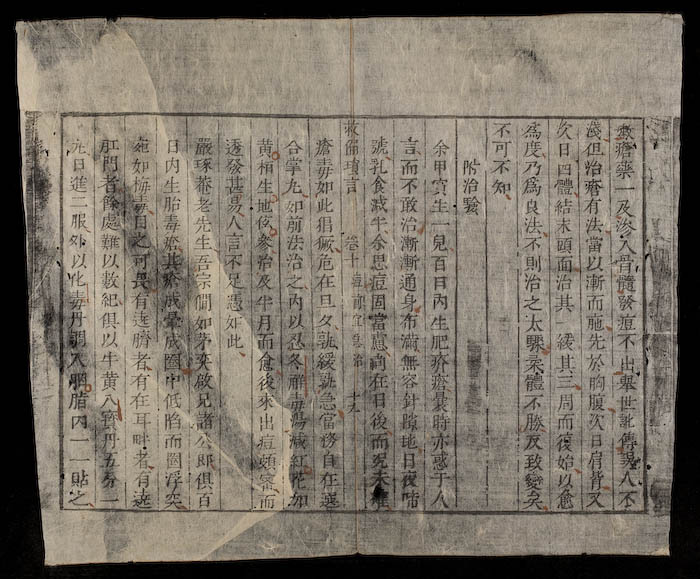 敷瘡藥一及滲入骨髓發痘不出舉世訛傳吳人不
淺但治瘡有法當以漸而施先於胸腹次日肩背又
次日四體結末頭面治其一緩其三周而復始以愈
為度乃為良法不則治之太驟柔體不勝反致變矣
不可不知
附治驗
余甲寅生一兒百日內生肥疥瘡曩時亦惑于人
言而不敢治漸漸通身布滿無容針隙地日夜啼
號乳食減半余思痘固當慮尚在日後而況未確
救偏瑣言 卷十 痘前宜急治 十九
瘡毒如此猖獗危在旦夕孰緩孰急當務自在遂
合掌丸如前法治之內以忍冬解毒湯減紅花加
黃栢生地參治及半月而愈後來出痘頗密而
透發甚易人言不足憑如此
嚴琢菴老先生吾宗間如茅奕啟兄諸公郎俱百
日內生胎毒瘡其瘡成暈成圈中低陷而圈浮突
宛如梅毒目之可畏有遶臍者有在耳畔者有遶
肛門者餘處難以數紀俱以牛黃八寶丹五分二
九日進二服外以化毒丹調入胭脂內一一貼之